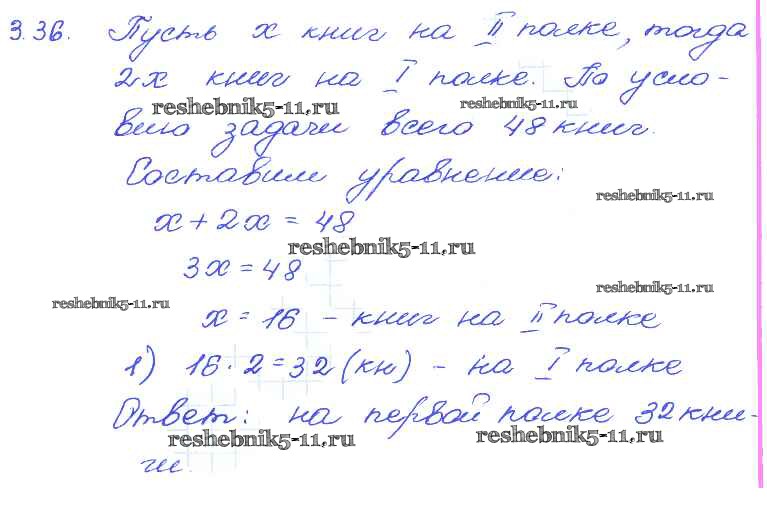 3.36. Пусть x книг на II полке, тогда
2x книг на I полке. По усло-
reshebnik5-11.ru reshebnik5-11.ru
вию задачи всего 48 книг.
Составим уравнение:
reshebnik5-11.ru
x + 2x = 48
reshebnik5-11.ru
3x = 48
reshebnik5-11.ru
reshebnik5-11.ru
x = 16 - книг на II полке
1) 16 · 2 = 32 (кн) - на I полке
Ответ: на первой полке 32 кни-
reshebnik5-11.ru reshebnik5-11.ru
ги.